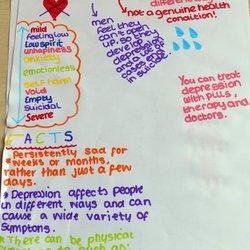 different
not a genuine health
condition!
men
feel they
can't open
up, so they
develop
depression
and are
of
suicide.
mild
feeling low
low spirit
unhappiness
anxiety
emotionless
self harm
void
Empty
Suicidal
Severe
You can treat
depression
with pills,
therapy and
doctors.
FACTS
* Persistently sad for
weeks or months,
rather than just a few
days.
* Depression affects people
in different ways and can
cause a wide variety of
symptoms.
* There can be physical